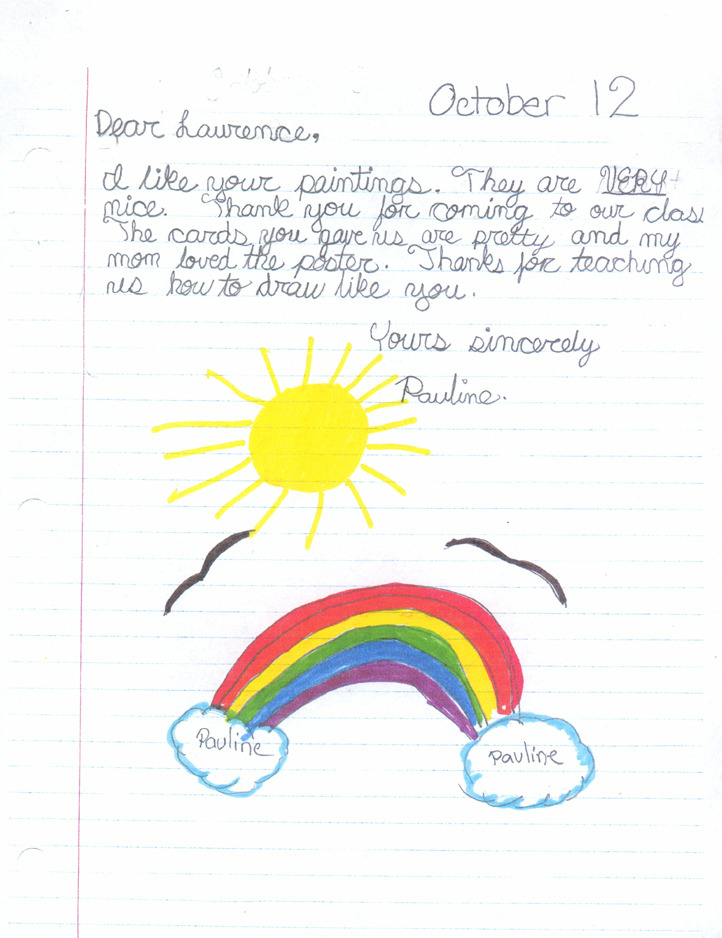 October 12
Dear Lawrence,
I like your paintings. They are VERY
nice. Thank you for coming to our class
The cards you gave us are pretty and my
mom loved the poster. Thanks for teaching
us how to draw like you.
Yours sincerely
Pauline.
Pauline
Pauline